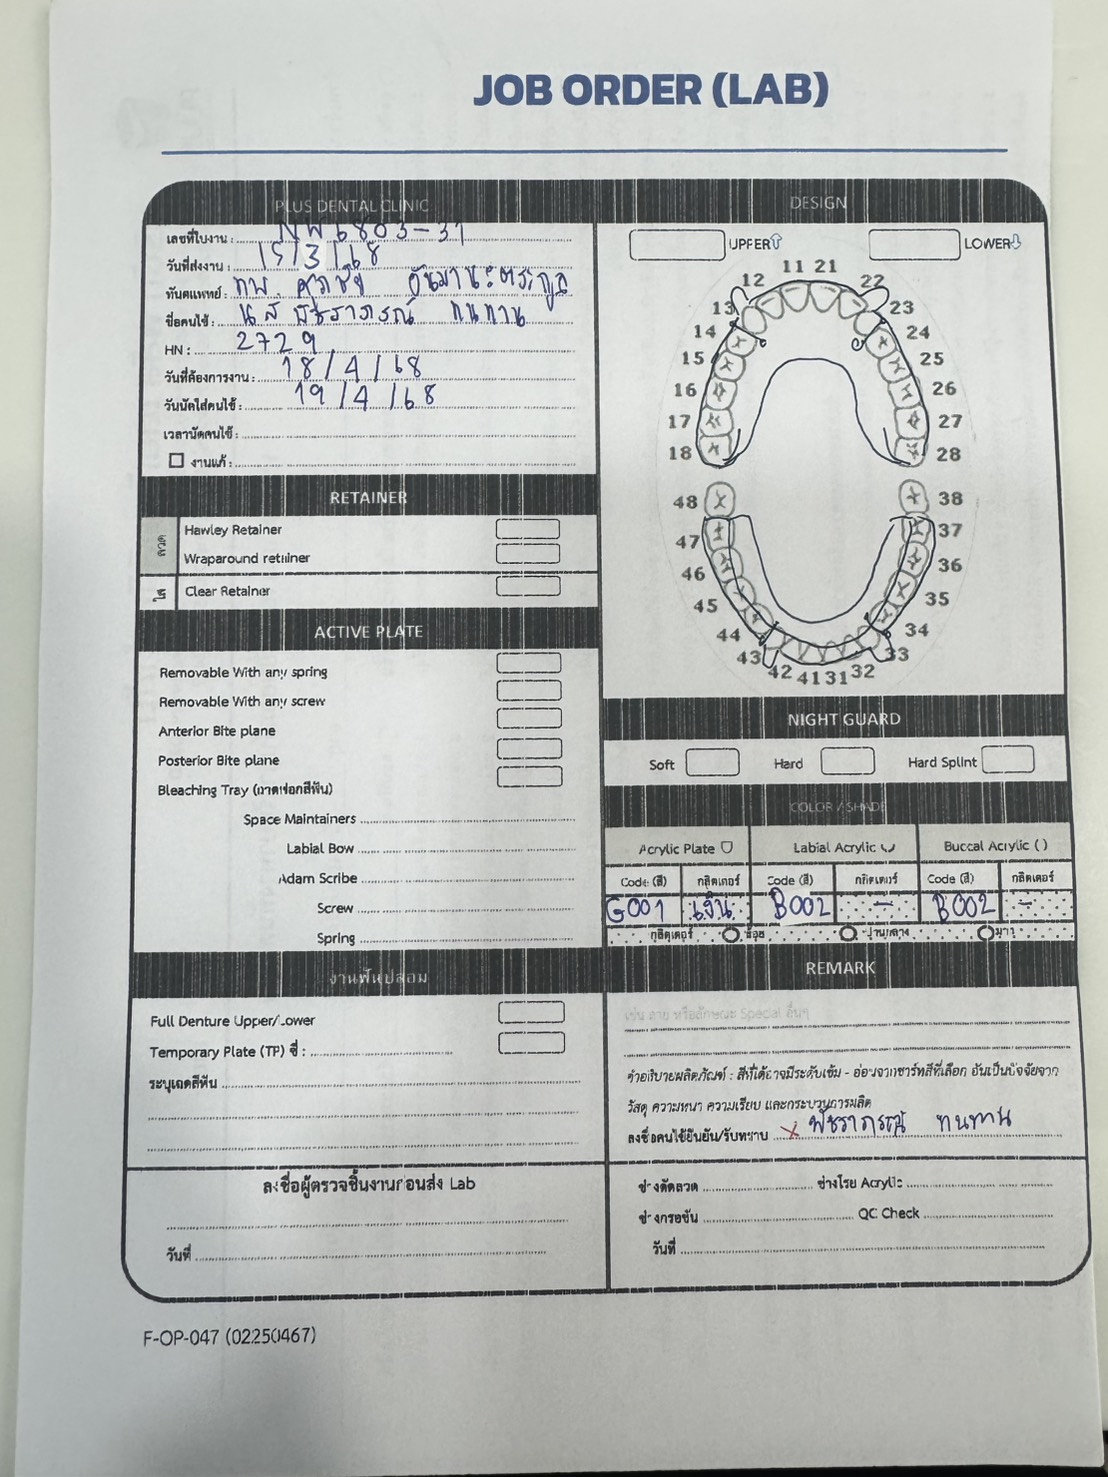 JOB ORDER (LAB)
PLUS DENTAL CLINIC
เลขที่ใบงาน : NW6803-31
วันที่ส่งงาน : 15/3/68
ทันตแพทย์ : ทพ. ศุภชัย
ชื่อคนไข้ : นส พัชราภรณ์ ทนทาน
HN : 2729
วันที่ต้องการงาน : 18/4/68
วันนัดใส่คนไข้ : 19/4/68
เวลานัดคนไข้ :
งานแก้ :
RETAINER
ลวด
Hawley Retainer
Wraparound retainer
ใส
Clear Retainer
ACTIVE PLATE
Removable With any spring
Removable With any screw
Anterior Bite plane
Posterior Bite plane
Bleaching Tray (ถาดฟอกสีฟัน)
Space Maintainers
Labial Bow
Adam Scribe
Screw
Spring
งานฟันปลอม
Full Denture Upper/Lower
Temporary Plate (TP) ซี่ :
ระบุเฉดสีฟัน
ลงชื่อผู้ตรวจชิ้นงานก่อนส่ง Lab
วันที่
DESIGN
UPPER
LOWER
11 21
12 22
13 23
14 24
15 25
16 26
17 27
18 28
48 38
47 37
46 36
45 35
44 34
43 33
42 41 31 32
NIGHT GUARD
Soft Hard Hard Splint
COLOR / SHADE
Acrylic Plate Labial Acrylic Buccal Acrylic ( )
Code (สี) กลิตเตอร์ Code (สี) กลิตเตอร์ Code (สี) กลิตเตอร์
G001 เงิน B002 - B002 -
กลิตเตอร์ น้อย ปานกลาง มาก
REMARK
เช่น ลาย หรือลักษณะ Special อื่นๆ
คำอธิบายผลิตภัณฑ์ : สีที่ได้อาจมีระดับเข้ม - อ่อนจากชาร์ทสีที่เลือก อันเป็นปัจจัยจาก
วัสดุ ความหนา ความเรียบ และกระบวนการผลิต
ลงชื่อคนไข้ยืนยัน/รับทราบ x พัชราภรณ์ ทนทาน
ช่างดัดลวด ช่างโรย Acrylic
ช่างกรอขัด QC Check
วันที่
F-OP-047 (02250467)